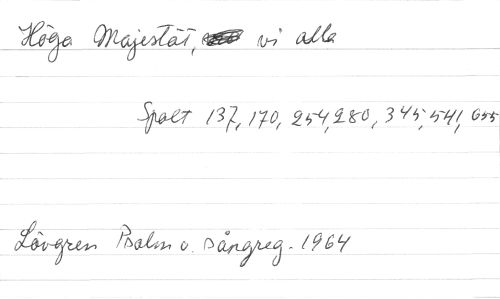 Höga Majestät, vi alla
Spalt 137, 170, 254, 280, 345, 541, 655
Lövgren Psalm o. sångreg. 1964